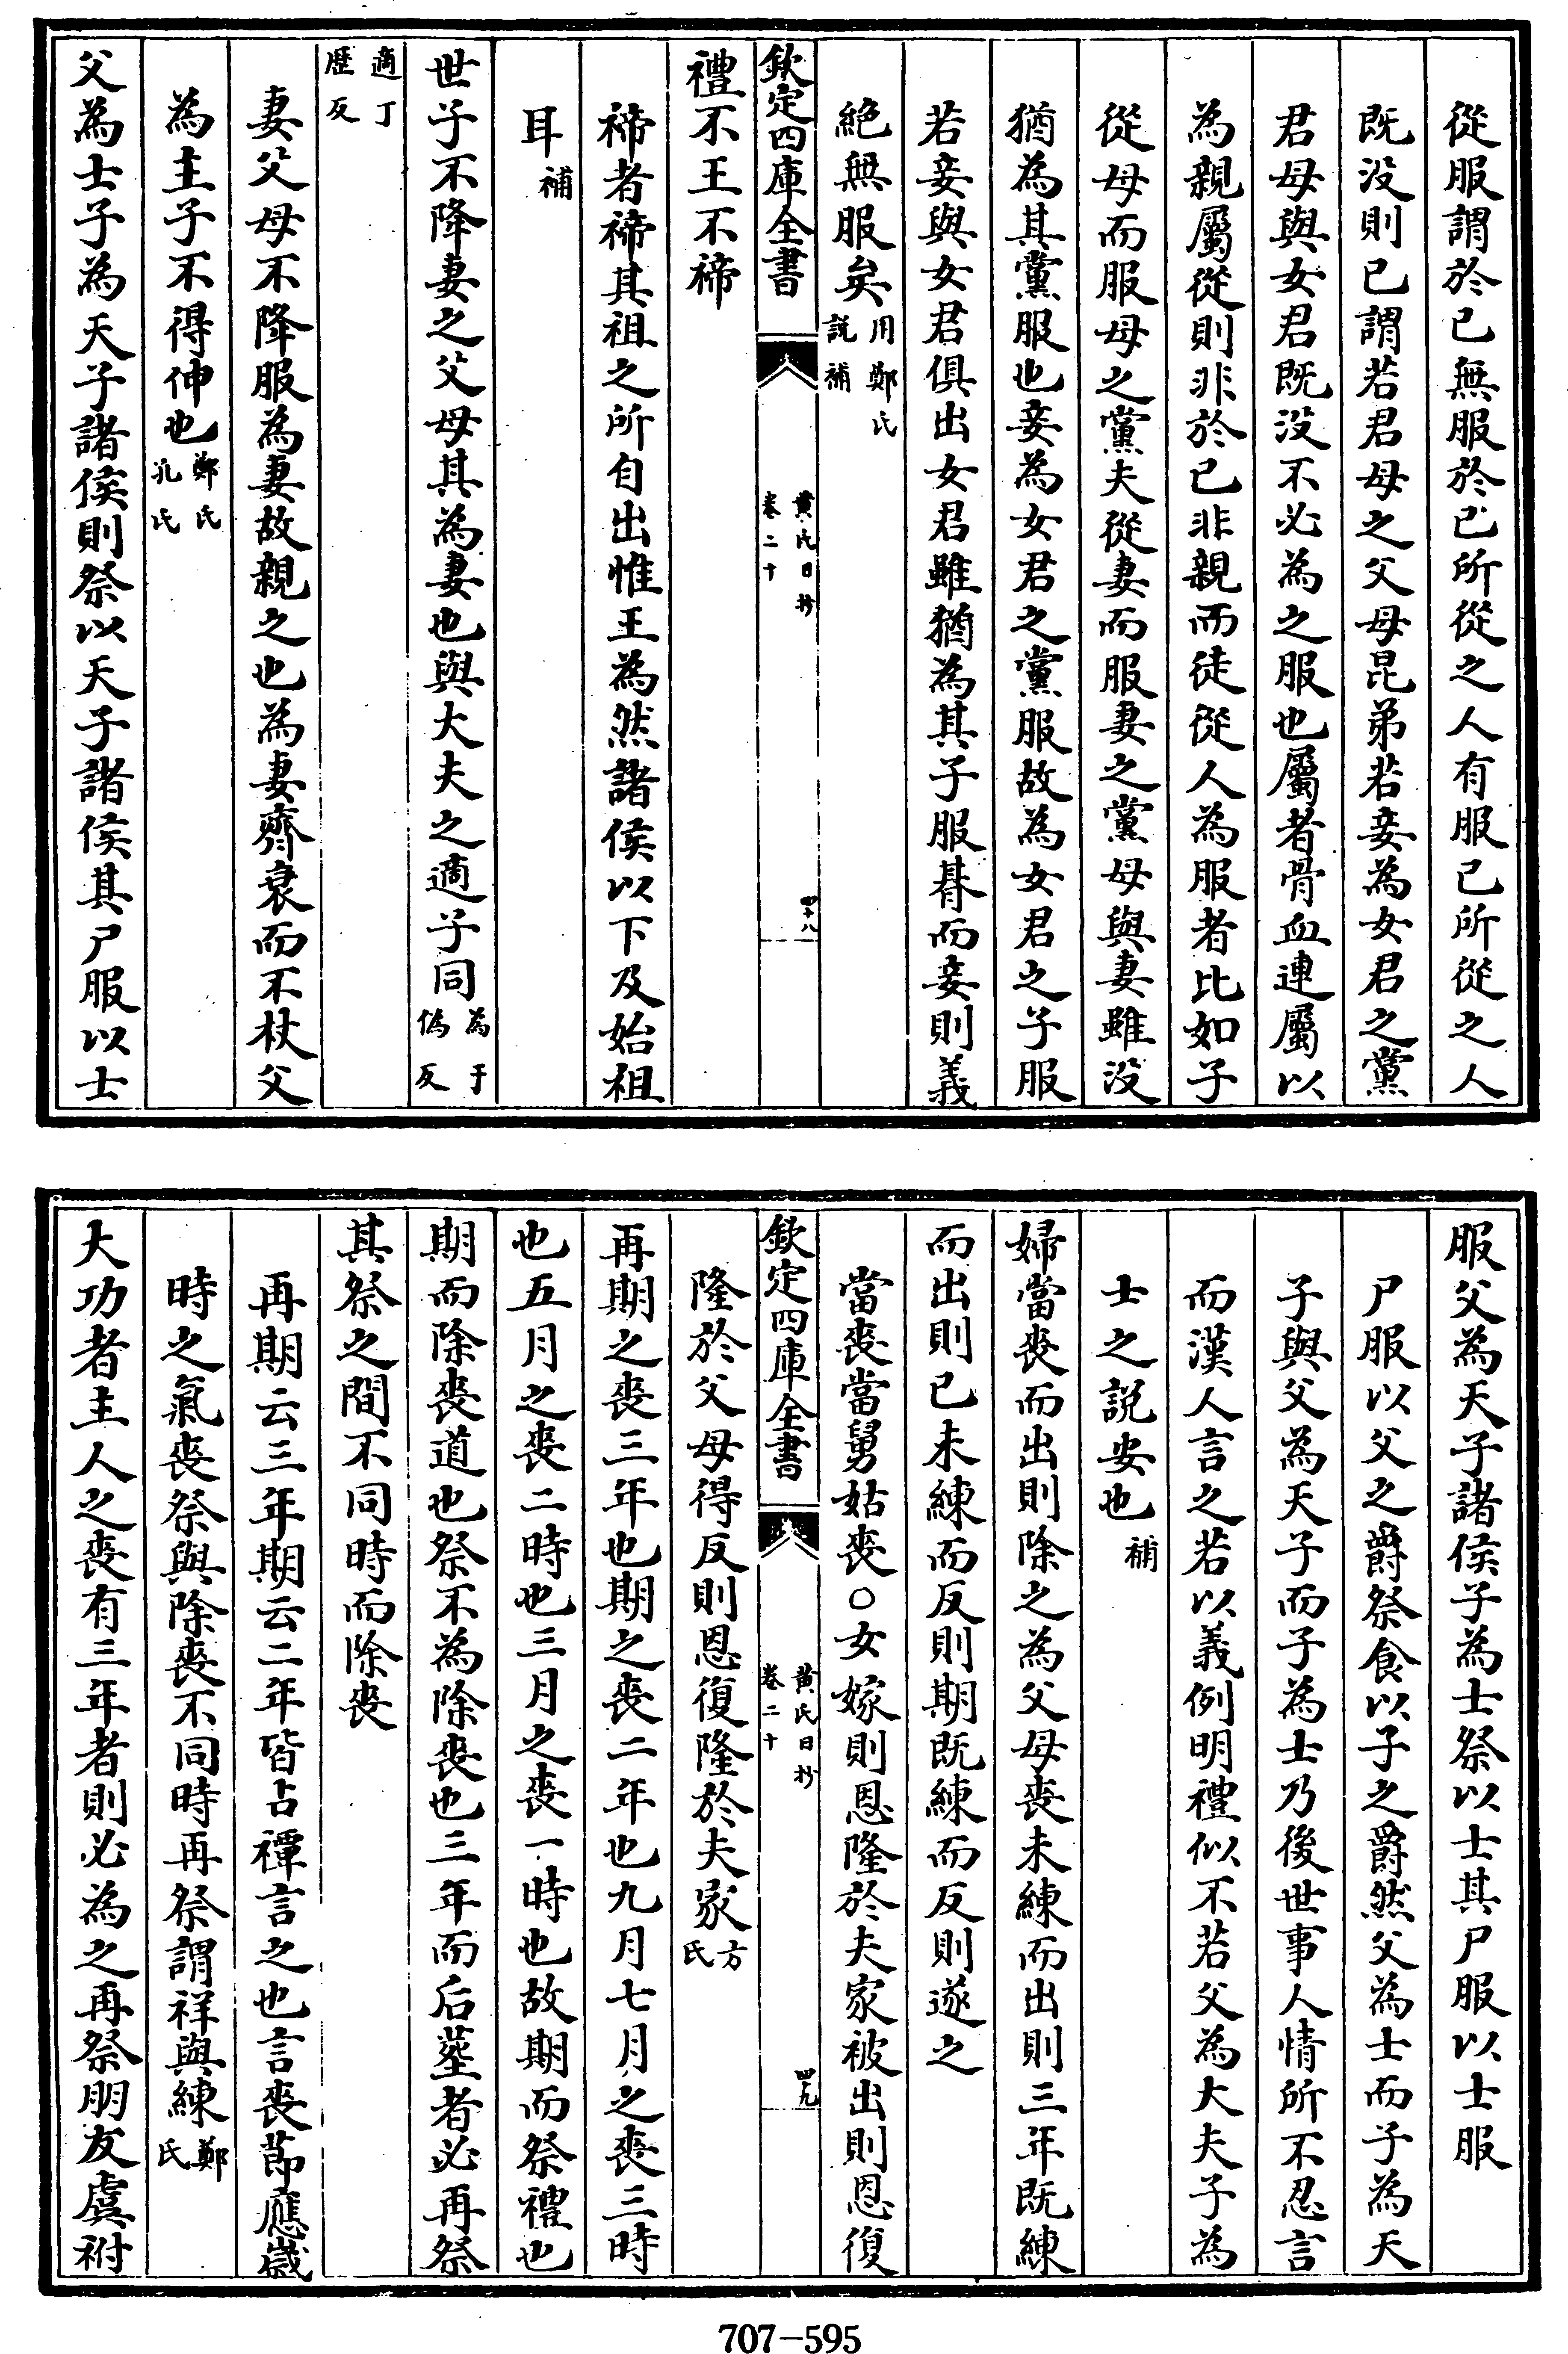 從服謂於已無服於已所從之人有服已所從之人
既没則已謂若君母之父母昆弟若妾為女君之黨
君母與女君既没不必為之服也屬者骨血連屬以
為親屬從則非於已非親而徒從人為服者比如子
從母而服母之黨夫從妻而服妻之黨母與妻雖没
猶為其黨服也妾為女君之黨服故為女君之子服
若妾與女君俱出女君雖猶為其子服朞而妾則義
絶無服矣用鄭氏説補
欽定四庫全書
黄氏日抄
卷二十
四十八
禮不王不禘
禘者禘其祖之所自出惟王為然諸侯以下及始祖
耳補
世子不降妻之父母其為妻也與大夫之適子同為于偽反
適丁歷反
妻父母不降服為妻故親之也為妻齊衰而不杖父
為主子不得伸也鄭氏孔氏
父為士子為天子諸侯則祭以天子諸侯其尸服以士
服父為天子諸侯子為士祭以士其尸服以士服
尸服以父之爵祭食以子之爵然父為士而子為天
子與父為天子而子為士乃後世事人情所不忍言
而漢人言之若以義例明禮似不若父為大夫子為
士之説安也補
婦當喪而出則除之為父母喪未練而出則三年既練
而出則已未練而反則期既練而反則遂之
當喪當舅姑喪○女嫁則恩隆於夫家被出則恩復
欽定四庫全書
黄氏日抄
卷二十
四九
隆於父母得反則恩復隆於夫家方氏
再期之喪三年也期之喪二年也九月七月之喪三時
也五月之喪二時也三月之喪一時也故期而祭禮也
期而除喪道也祭不為除喪也三年而后塟者必再祭
其祭之間不同時而除喪
再期云三年期云二年皆占禫言之也言喪節應歲
時之氣喪祭與除喪不同時再祭謂祥與練鄭氏
大功者主人之喪有三年者則必為之再祭朋友虞祔
707-595